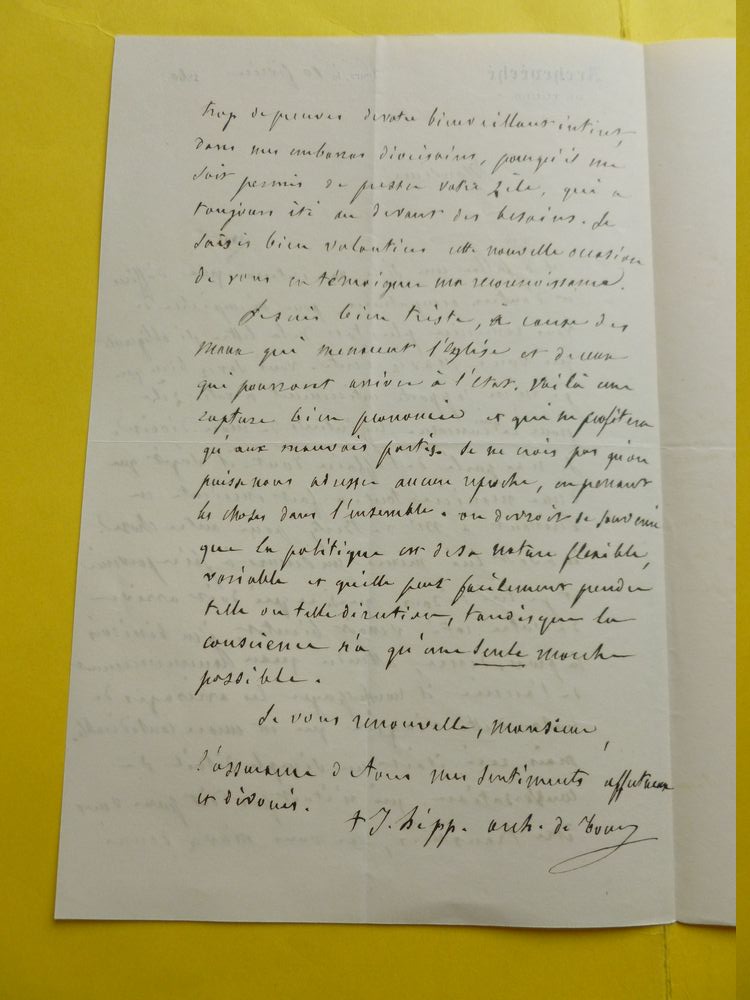 trop de preuves de votre bienveillant intérêt,
dans mes embarras diocésains, pour qu'il me
soit permis de presser votre zèle, qui a
toujours été au devant des besoins. Je
saisis bien volontiers cette nouvelle occasion
de vous en témoigner ma reconnoissance.
Je suis bien triste, à cause des
maux qui menacent l'Eglise et de ceux
qui pourront arriver à l'Etat. Voilà une
rupture bien prononcée et qui ne profitera
qu'aux mauvais partis. Je ne crois pas qu'on
puisse nous adresser aucun reproche, en prenant
les choses dans l'ensemble. on devroit se souvenir
que la politique est de sa nature flexible,
variable et qu'elle peut facilement prendre
telle ou telle direction, tandis que la
conscience n'a qu'une seule marche
possible.
Je vous renouvelle, Monsieur,
l'assurance de tous mes sentiments affectueux
et dévoués.
+ J. hipp. arch. de Tours